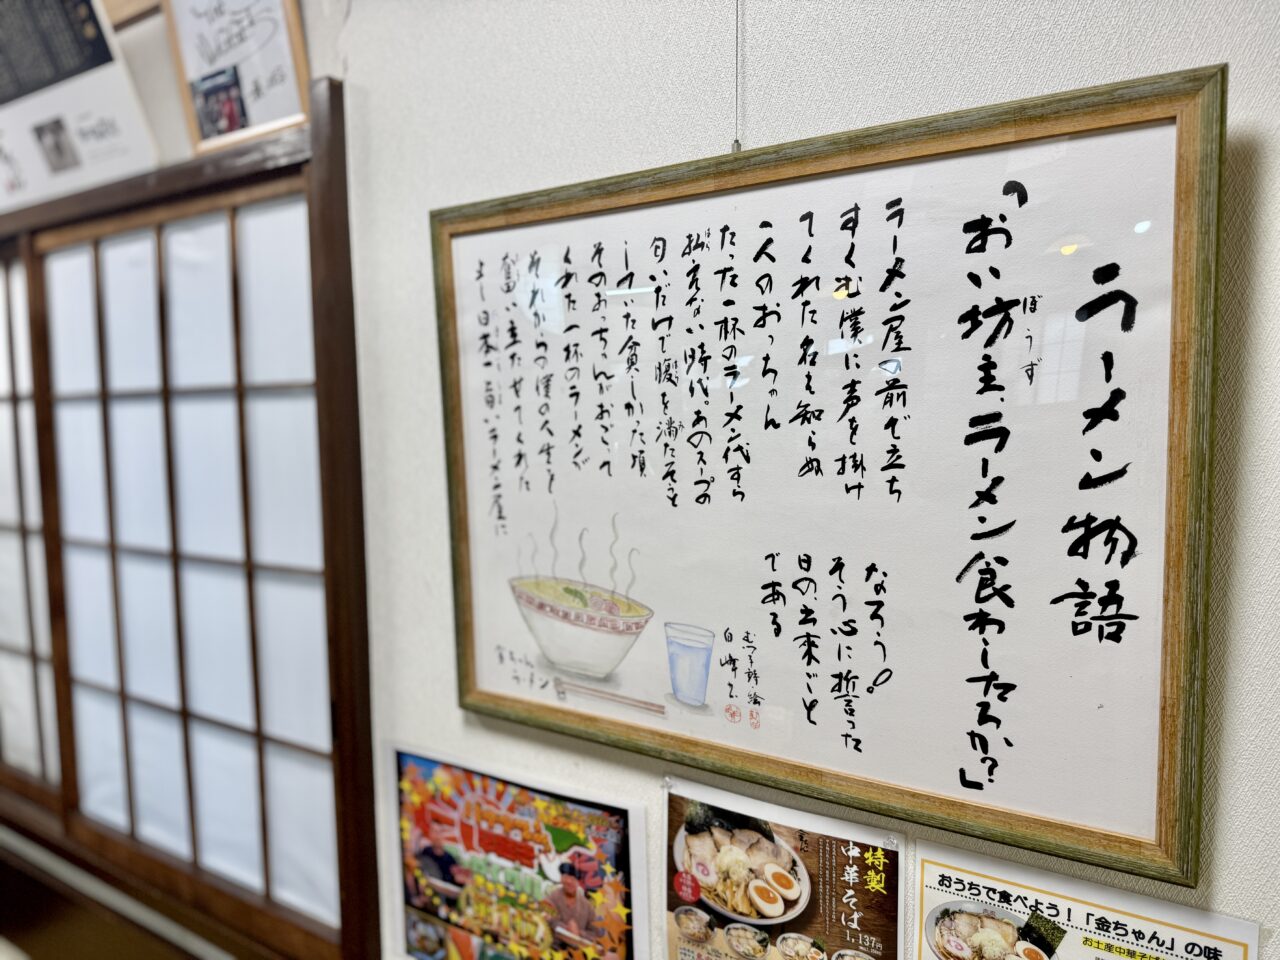 ラーメン物語
「おい坊主、ラーメン食わしたろか?」
ぼうず
ラーメン屋の前で立ち
すくむ僕に声を掛け
てくれた名も知らぬ
一人のおっちゃん
たった一杯のラーメン代すら
払えない時代。あのスープの
匂いだけで腹を満たそうと
していた貧しかった頃
そのおっちゃんがおごって
くれた一杯のラーメンが
それからの僕の人生を
奮い立たせてくれた
よし日本一旨いラーメン屋に
なろう。
そう心に誓った
日の出来ごと
である
ラーメン
特製
中華そば
1,137円
おうちで食べよう!「金ちゃん」の味
お土産中華そば